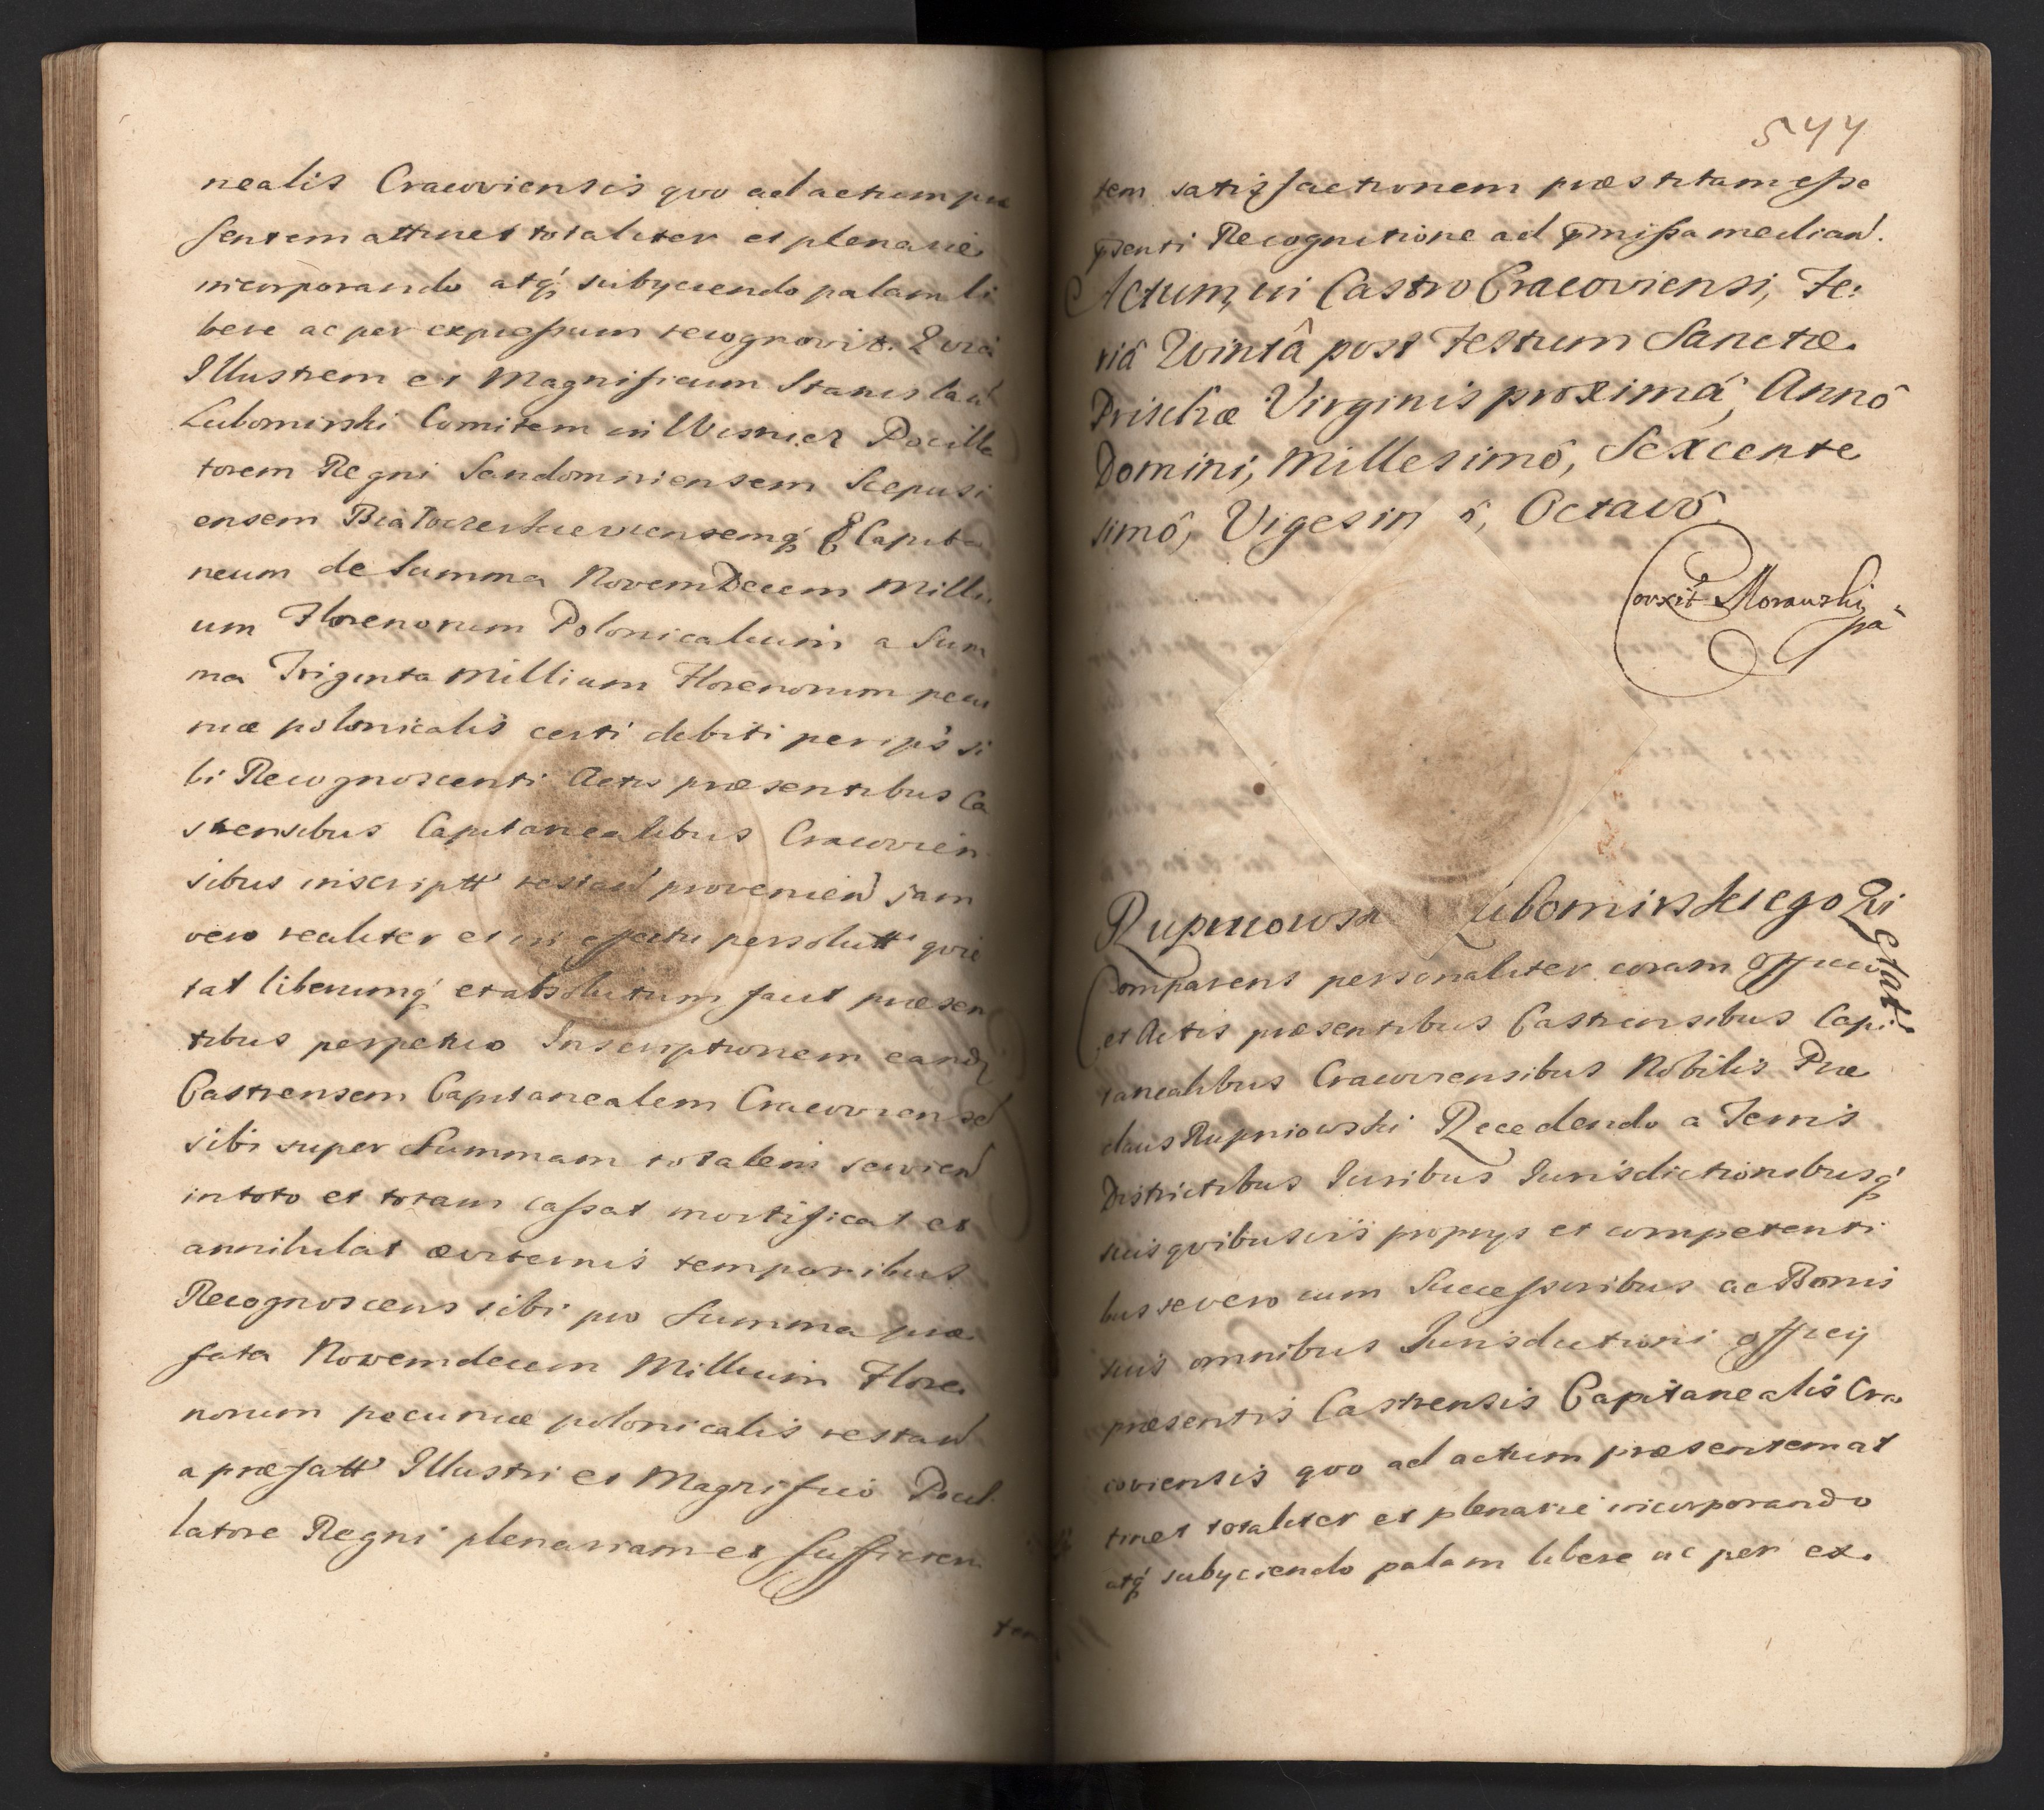 nealis Cracoviensis qvo ad actum præ
sentem attinet totaliter et plenarie
incorporando atq́ subyciendo palam li
bere ac per expressum recognovit. Quia
Illustrem et Magnificum Stanislaũ
Lubomirski Comitem in Wisnicz Pocilla
torem Regni Sandomiriensem Scepusi
ensem Capita
neum de Summa Novemdecem Milli
um Florenorum Polonicalium a Sum
ma Triginta Millium Florenorum pecu
niæ polonicalis certi debiti per ips si
bi Recognoscenti Actis præsentibus Ca
strensibus Capitanealibus Cracovien
sibus inscriptt restand provenien jam
vero realiter et in effectu persolutt qvie
tat liberumq́ et absolutum facit præsen
tibus perpetuo Inscriptionem eand
Castrensem Capitanealem Cracoviensẽ
sibi super Summam totalem servien
in toto et totam cassat mortificat et
annihilat æviternis temporibus
Recognoscens sibi pro Summa præ
fata Novemdecem Millium Flore
norum pecuniæ polonicalis restand
a præfatt Illustri et Magnifico Pocil
latore Regni plenariam et sufficien
tem
544
tem satisfactionem præstitam esse
pśenti Recognitione ad pmissa median.
Actum, in Castro Cracoviensi, Fe:
riâ Qvintâ post Festum Sanctæ
Prischæ Virginis proximâ, Annô
Domini, Millesimô, Sexcente
simô, Vigesim ô, Octavô.
Correxit Morawski
Rupniowsk Lubomirskiego Qvi
etat.
Comparens personaliter coram Officio
et Actis præsentibus Castrensibus Capi
tanealibus Cracoviensibus Nobilis Præ
claus Rupniowski Recedendo a Terris
Districtibus Iuribus Iurisdictionibusq́
suis qvibusvis proprys et competenti
bus se vero cum Successoribus ac Bonis
suis omnibus Iurisdictioni officy
præsentis Castrensis Capitanealis Cra
coviensis qvo ad actum præsentem at
tinet totaliter et plenarie incorporando
atq́ subyciendo palam libere ac per ex.